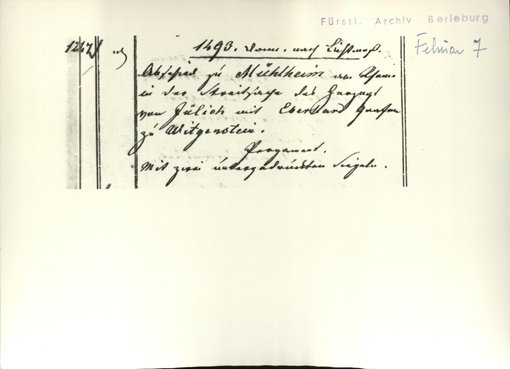 Fürstl. Archiv Berleburg
Februar 7
1493. Donn. nach Lichtmeß.
Abschied zu Mühlheim am Rhein
in der Streitsache des Herzogs
von Jülich mit Eberhard Grafen
zu Witgenstein.
Pergament.
Mit zwei untergedrückten Siegeln.